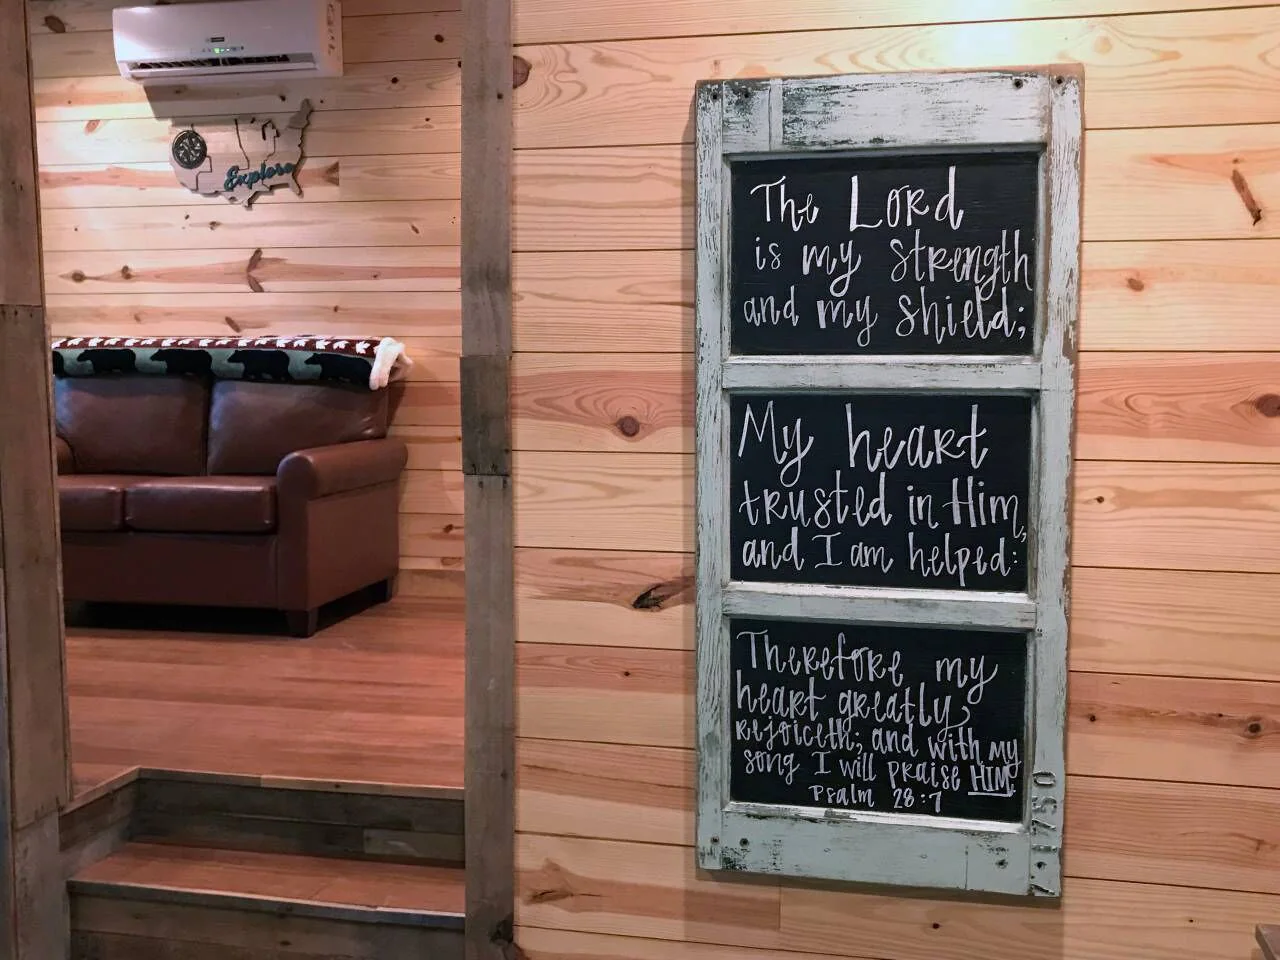 Explore
The Lord
is my strength
and my shield;
My heart
trusted in Him,
and I am helped:
Therefore my
heart greatly
rejoiceth; and with my
song I will praise HIM.
Psalm 28:7
1750